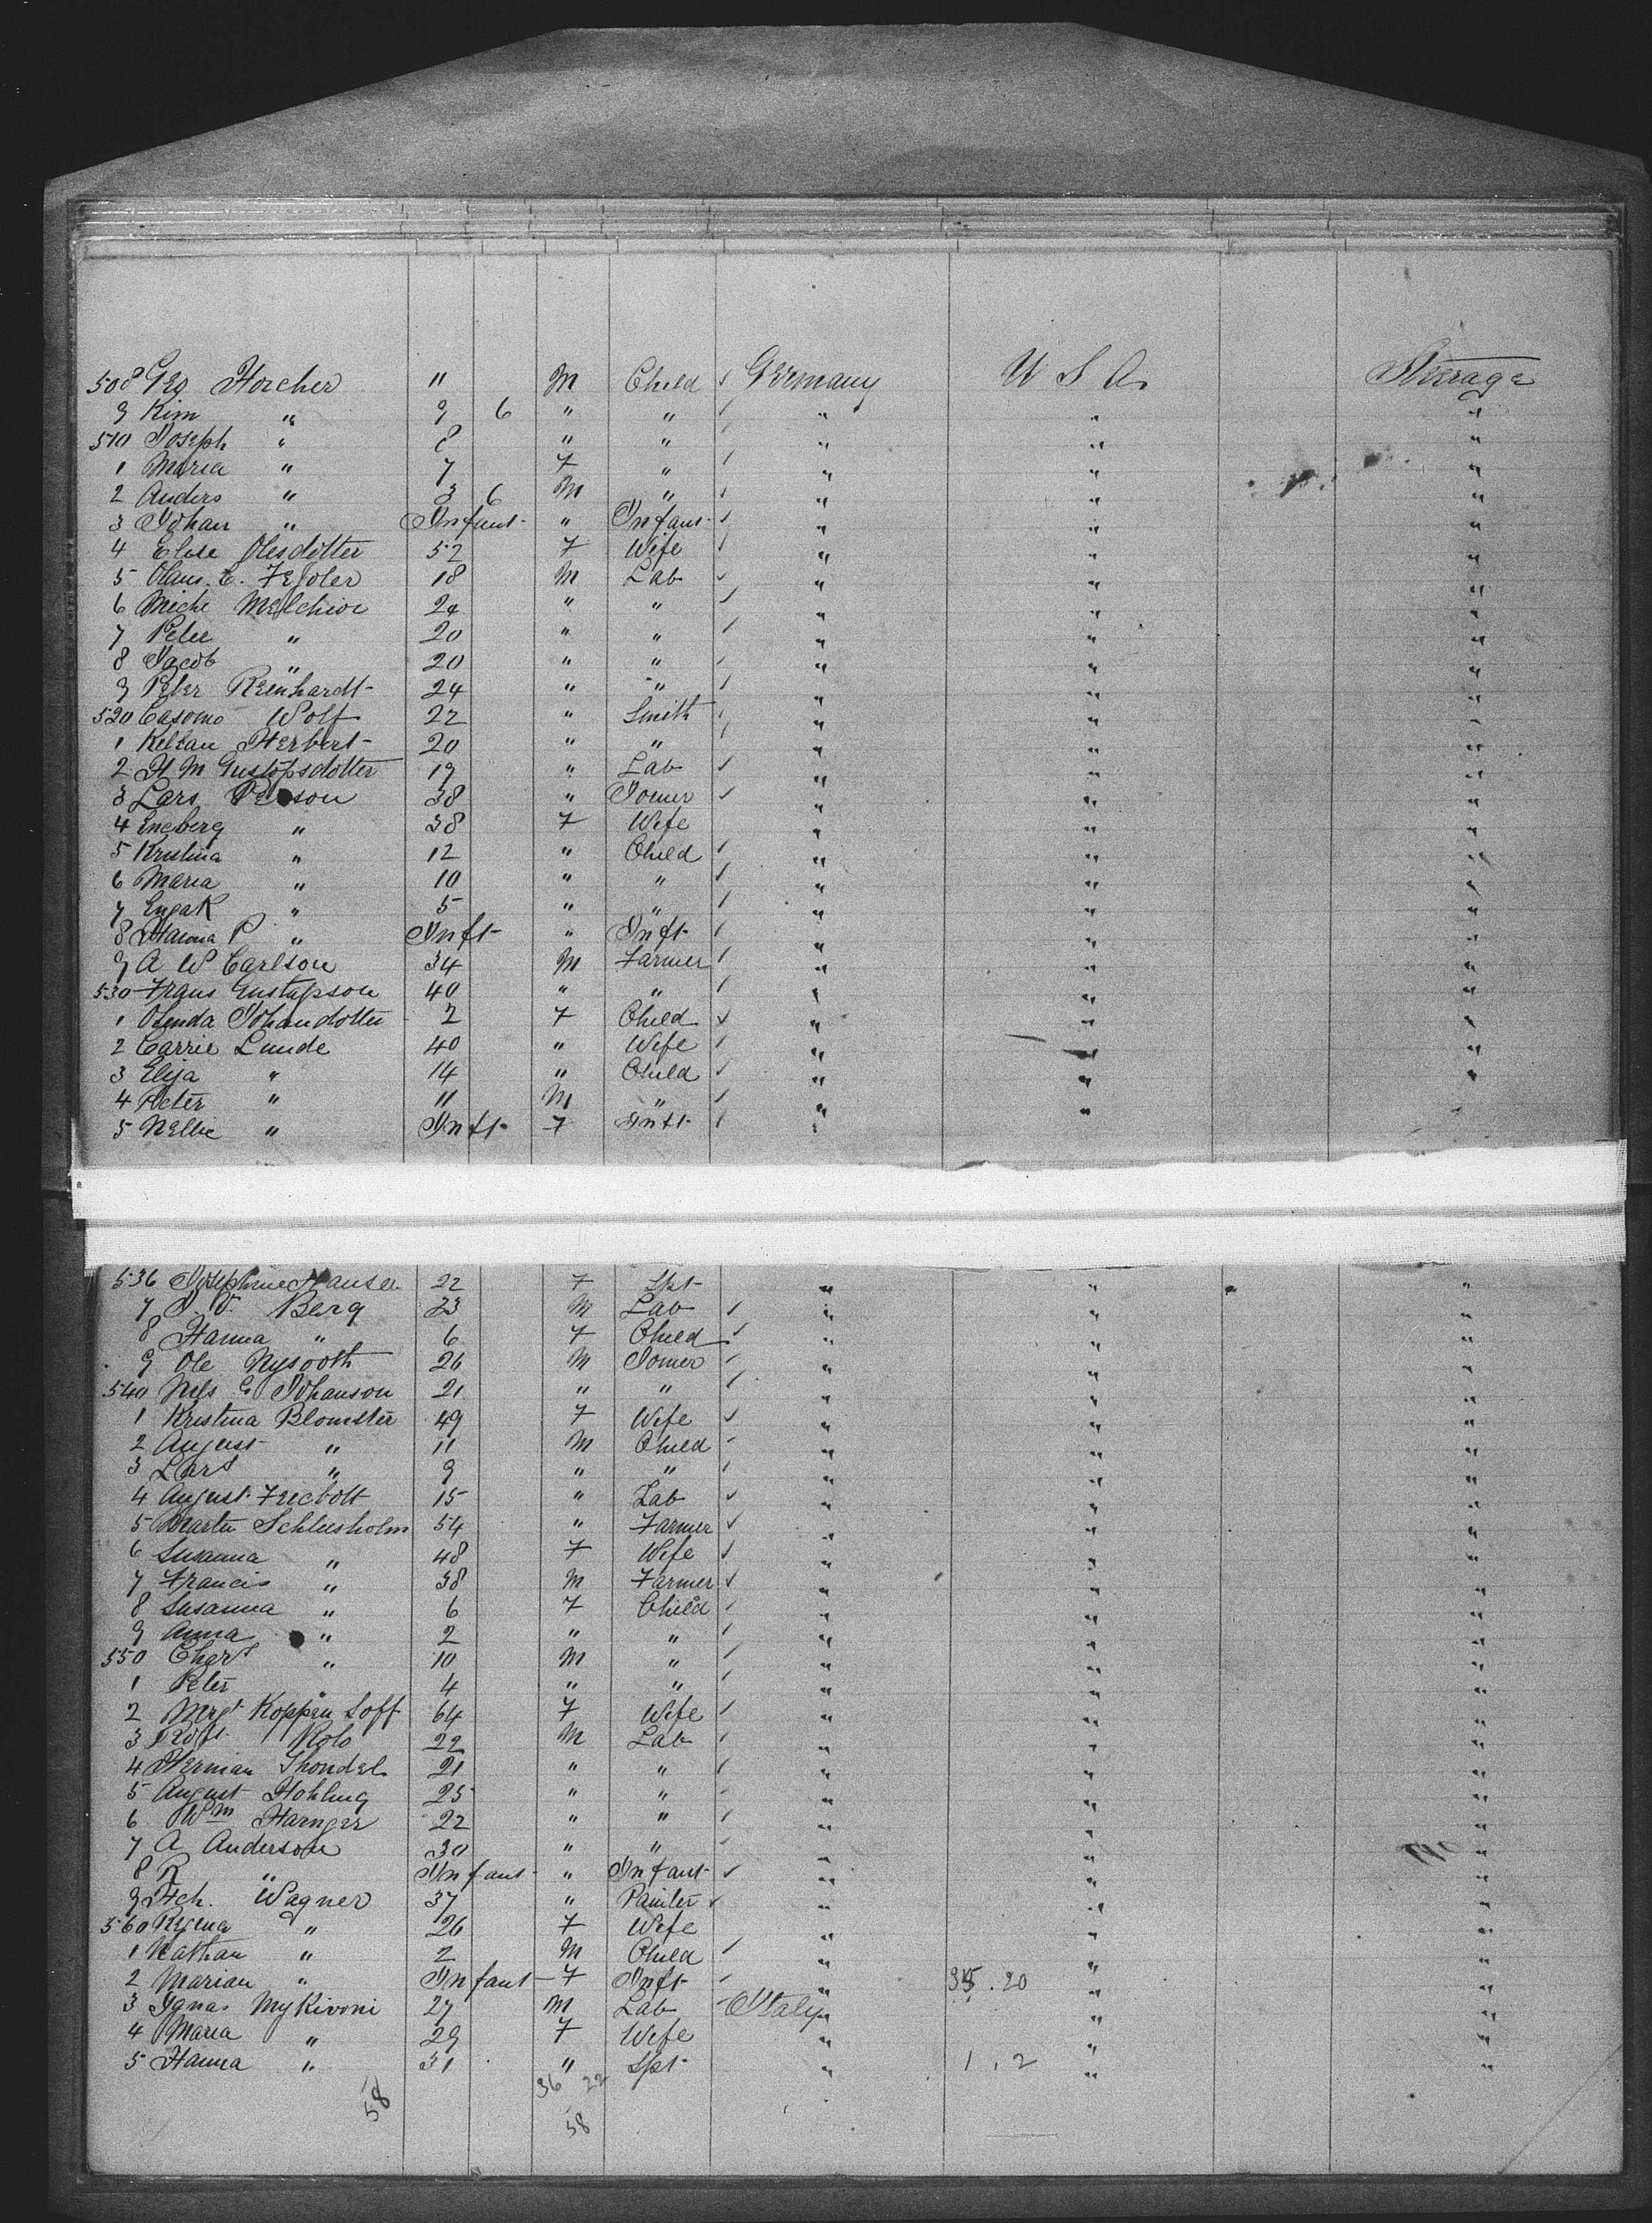 508 Geo Horcher 11 M Child ✓ Germany U S A. Steerage
9 Kim " 9 6 " " ✓ " " "
510 Joseph " 8 " " ✓ " " "
1 Maria " 7 F " ✓ " " "
2 Anders " 3 6 M " ✓ " " "
3 Johan " Infant " Infant ✓ " " "
4 Elise Olesdotter 52 F Wife ✓ " " "
5 Olaus. E. 18 M Lab ✓ " " "
6 Miche Melchior 24 " " ✓ " " "
7 Peter " 20 " " ✓ " " "
8 Jacob " 20 " " ✓ " " "
9 Peter Reinhardt 24 " " ✓ " " "
520 Wolf 22 " Smith ✓ " " "
1 Kelian Herbert 20 " " ✓ " " "
2 H M Gustofsdotter 19 " Lab ✓ " " "
3 Lars Person 38 " Joiner ✓ " " "
4 Engberg " 38 F Wife " " "
5 Kristina " 12 " Child ✓ " " "
6 Maria " 10 " " ✓ " " "
7 " 5 " " ✓ " " "
8 Hanna P " Inft " Inft ✓ " " "
9 A W Carlson 34 M Farmer ✓ " " "
530 Frans Gustafson 40 " " ✓ " " "
1 Olinda Johandotter 2 F Child ✓ " " "
2 Carrie Lunde 40 " Wife ✓ " " "
3 Elija " 14 " Child ✓ " " "
4 Peter " 11 M " ✓ " "
5 Nellie " Inft F Inft ✓ "
536 Josephine Hansen 22 F Spt " " "
7 Berg 23 M Lab ✓ " " "
8 Hanna " 6 F Child ✓ " " "
9 Ole Nysooth 26 M Joiner ✓ " " "
540 Nils G Johanson 21 " " ✓ " " "
1 Kristina Blomster 49 F Wife ✓ " " "
2 August " 11 M Child ✓ " " "
3 Lars " 9 " " ✓ " " "
4 August 15 " Lab ✓ " " "
5 Martin Schlusholm 54 " Farmer ✓ " " "
6 Susanna " 48 F Wife ✓ " " "
7 Francis " 38 M Farmer ✓ " " "
8 Susanna " 6 F Child ✓ " " "
9 Anna " 2 " " ✓ " " "
550 Chas " 10 M " ✓ " " "
1 Peter " 4 " " ✓ " " "
2 Mrgt Koppen Loff 64 F Wife ✓ " " "
3 Robt Rolo 22 M Lab ✓ " " "
4 Herman Thondel 21 " " ✓ " " "
5 August Hohling 25 " " ✓ " " "
6 Wm Harnger 22 " " ✓ " " "
7 A Anderson 30 " " ✓ " " "
8 R " Infant " Infant ✓ " " "
9 Hch. Wagner 37 " Painter ✓ " " "
560 Regina " 26 F Wife " " "
1 Nathan " 2 M Child ✓ " " "
2 Marian " Infant F Inft ✓ " 35.20 " "
3 Ignas MyKivoni 27 M Lab Italy " "
4 Maria " 29 F Wife " " "
5 Hanna " 31 " Spt " 1.2 " "
36 22
58
58